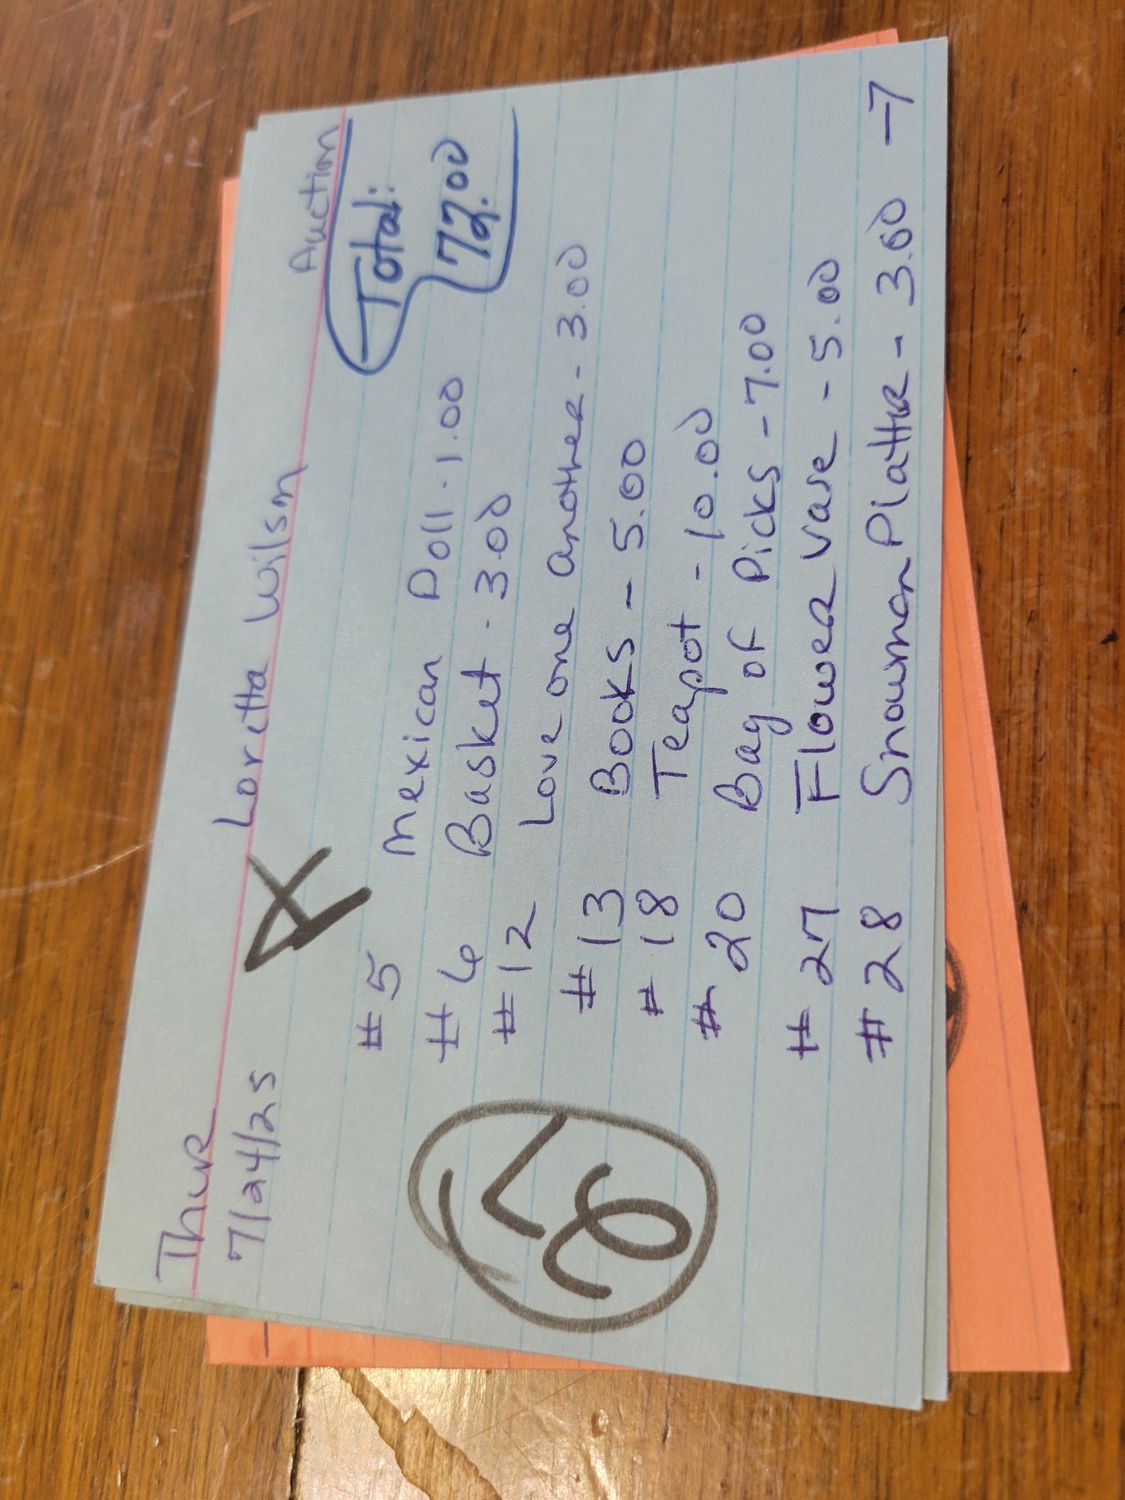 Thur
7/24/25
Loretta Wilson
Auction
Total:
72.00
#5 Mexican Doll - 1.00
#6 Basket - 3.00
#12 Love one another - 3.00
#13 Books - 5.00
#18 Teapot - 10.00
#20 Bag of Picks - 7.00
#27 Flower Vase - 5.00
#28 Snowman Platter - 3.00 -7